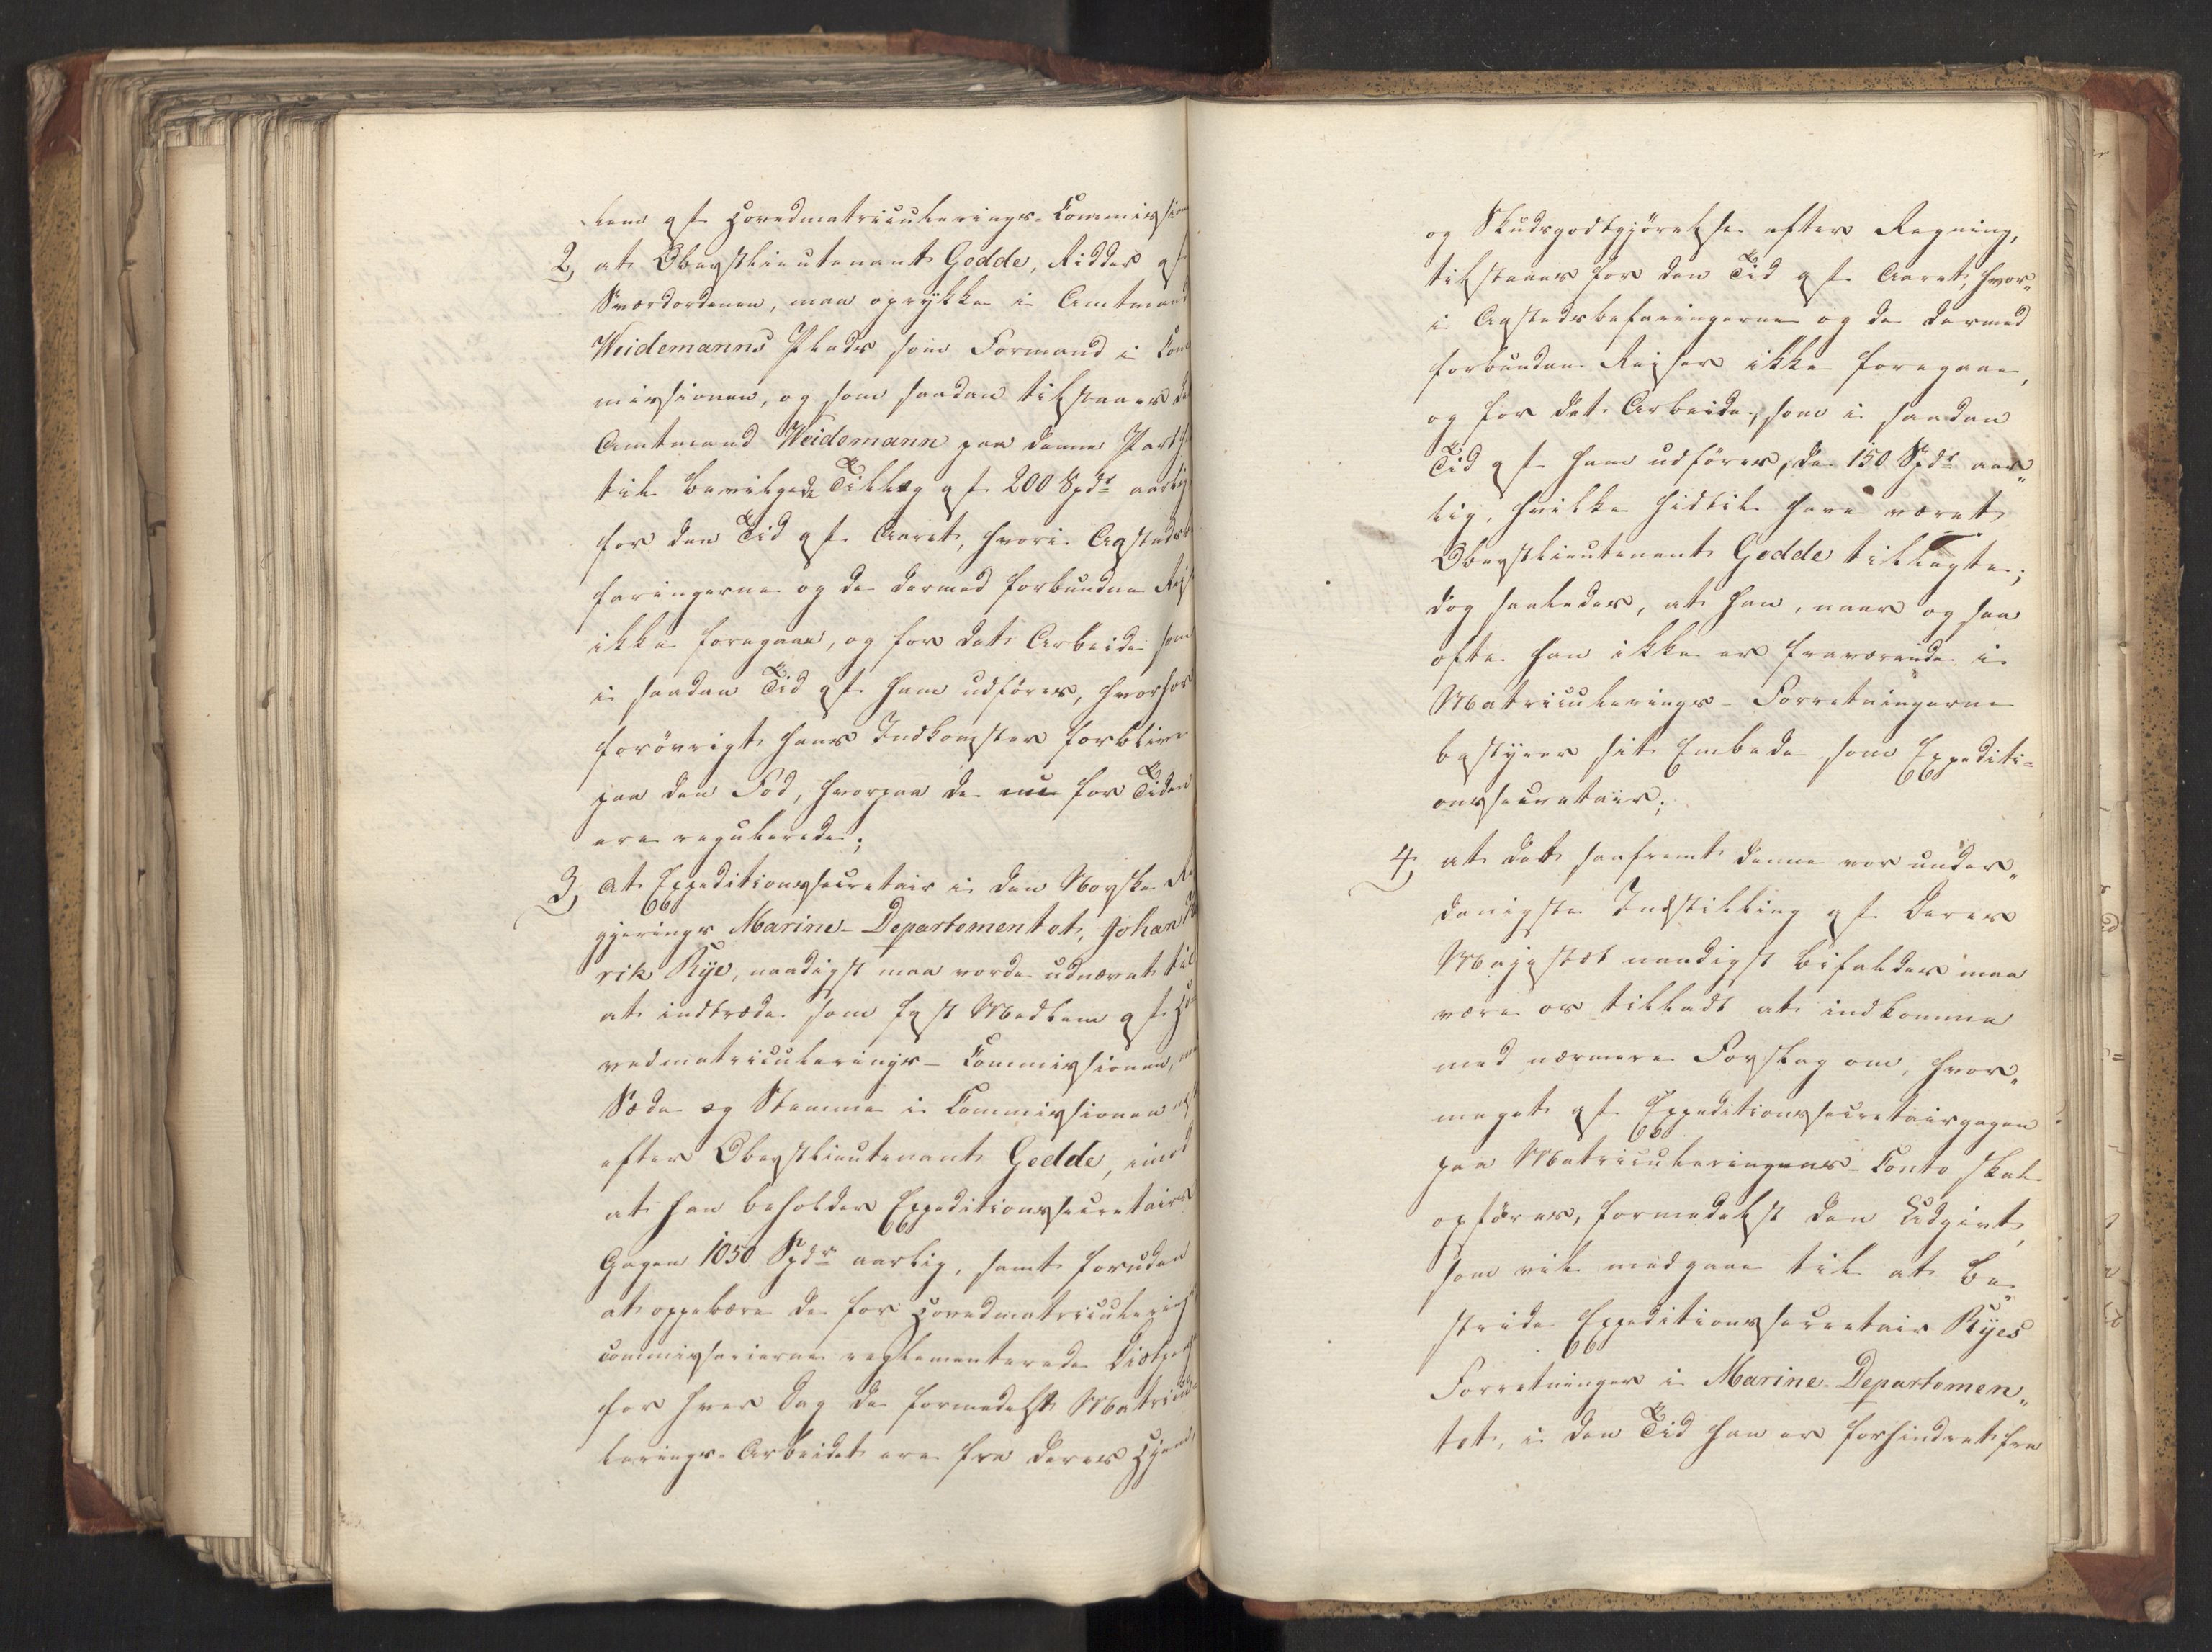 lem af Hovedmatriculerings-Commission
2, at Oberstlieutenant Gedde, Ridder af
Sværdordenen, maa oprykke i Amtmand
Weidemanns Plads som Formand i Com
missionen, og som saadan tilstaaes de
Amtmand Weidemann paa denne Post
til bevilgede Tillæg af 200 Spdr aarlig
for den Tid af Aaret, hvori Aastedsbe
faringerne og de dermed forbundne Rejs
ikke foregaae, og for det Arbeide som
i saadan Tid af ham udføres, hvorhos
forøvrigt hans Indkomster forblive
paa den Fod, hvorpaa de nu for Tiden
ere regulerede;
3, at Expeditionssecretair i den Norske Re
gjerings Marine-Departementet, Johan
rik Rye, naadigst maa vorde udnævnt til
at indtræde som fast Medlem af Ho
vedmatriculerings-Commissionen, med
Sæde og Stemme i Commissionen næst
efter Oberstlieutenant Gedde, imod
at han beholder Expeditionssecretairs
Gagen 1050 Spdr aarlig, samt foruden
at oppebære de for Hovedmatriculerings
commissairerne reglementerede Diætpenge
for hver Dag de formedelst Matricu-
lerings-Arbeidet ere fra deres Hjem,
og Skydsgodtgjørelse efter Regning,
tilstaaes for den Tid af Aaret, hvor„
i Aastedsbefaringerne og de dermed
forbundne Reiser ikke foregaae,
og for det Arbeide, som i saadan
Tid af ham udføres, de 150 Spdr aar„
lig, hvilke hidtil have været
Oberstlieutenant Gedde tillagte;
dog saaledes, at han, naar og saa
ofte han ikke er fraværende i
Matriculerings-Forretningerne
bestyrer sit Embede som Expediti=
onssecretair;
4, at det saafremt denne vor under„
danigste Indstilling af Deres
Majestæt naadigst bifaldes maa
være os tilladt at indkomme
med nærmere Forslag om, hvor„
meget af Expeditionssecretairgagen
paa Matriculeringens-Conto skal
opføres, formedelst den Udgivt,
som vil medgaae til at be„
stride Expeditionssecretair Ryes
Forretninger i Marine-Departemen„
tet, i den Tid han er forhindret fra